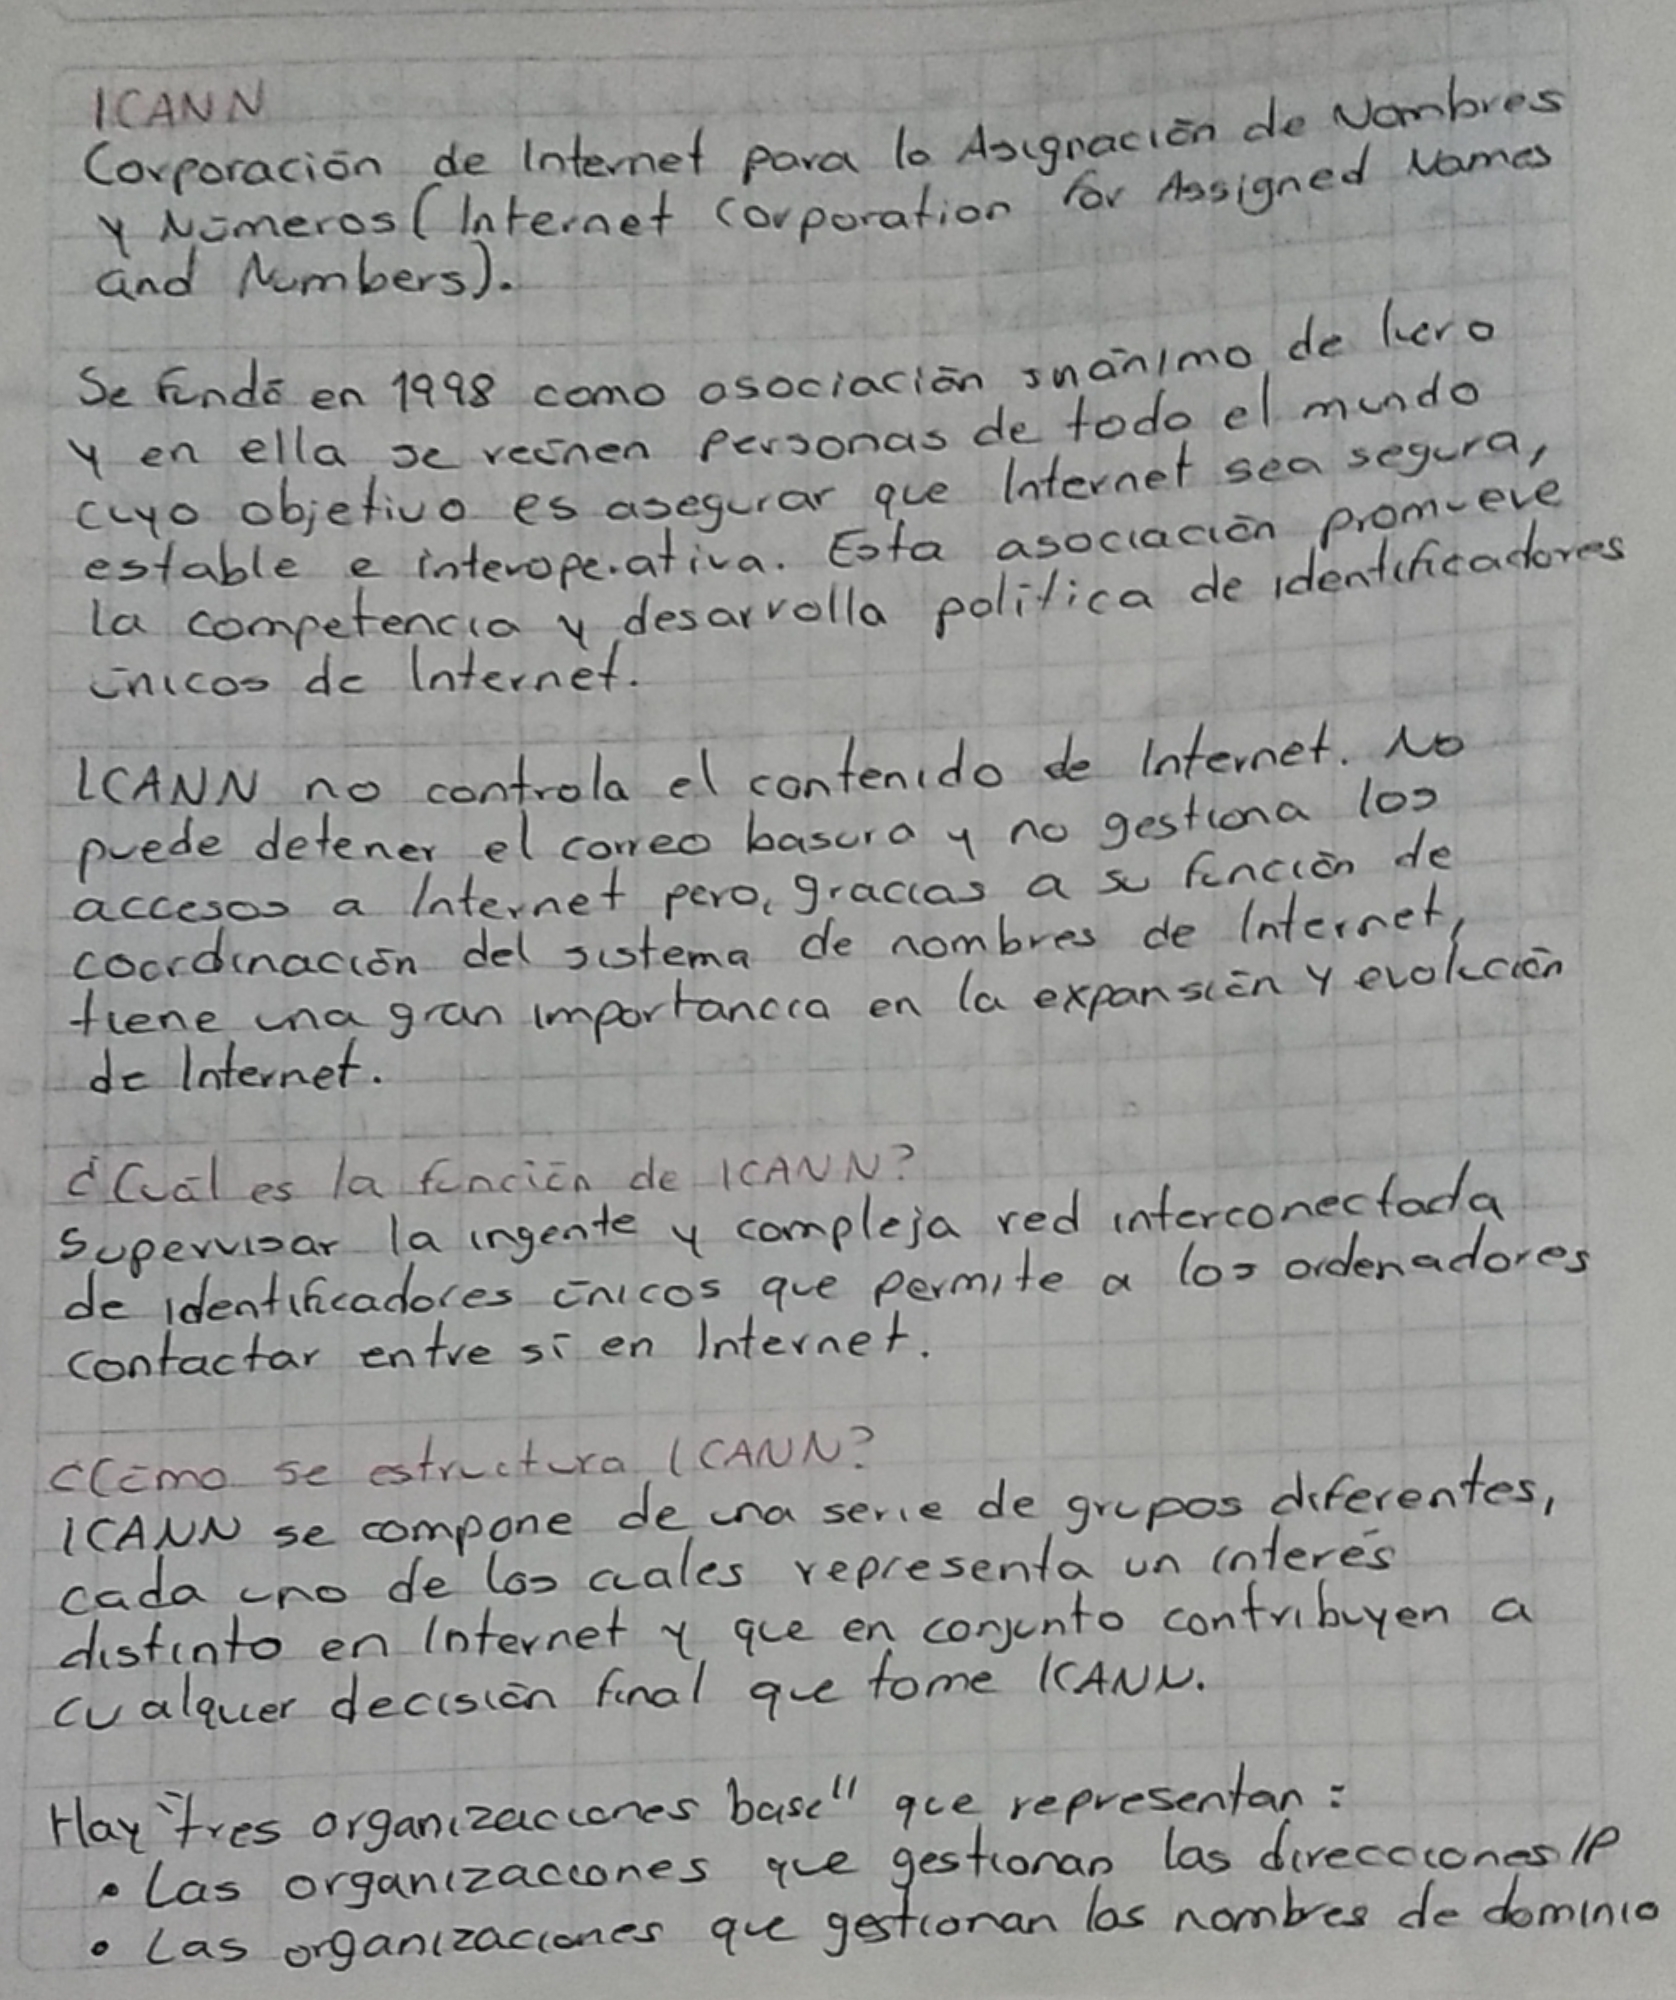 ICANN
Corporación de Internet para la Asignación de Nombres
y Números (Internet Corporation for Assigned Names
and Numbers).
Se fundó en 1998 como asociación de lucro
y en ella se reúnen personas de todo el mundo
cuyo objetivo es asegurar que Internet sea segura,
estable e interoperativa. Esta asociación promueve
la competencia y desarrolla política de identificadores
únicos de Internet.
ICANN no controla el contenido de Internet. No
puede detener el correo basura y no gestiona los
accesos a Internet pero, gracias a su función de
coordinación del sistema de nombres de Internet,
tiene una gran importancia en la expansión y evolución
de Internet.
¿Cuál es la función de ICANN?
Supervisar la ingente y compleja red interconectada
de identificadores únicos que permite a los ordenadores
contactar entre sí en Internet.
¿Cómo se estructura ICANN?
ICANN se compone de una serie de grupos diferentes,
cada uno de los cuales representa un interés
distinto en Internet y que en conjunto contribuyen a
cualquier decisión final que tome ICANN.
Hay "tres organizaciones base" que representan:
• Las organizaciones que gestionan las direcciones IP
• Las organizaciones que gestionan los nombres de dominio